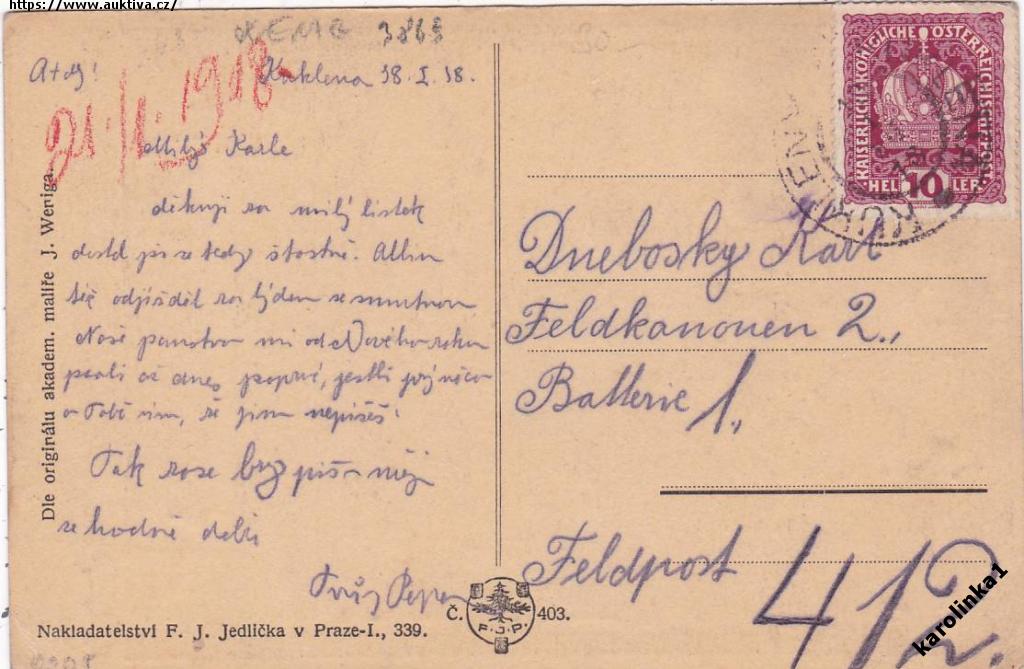 https://www.auktiva.cz/
3865
Kuklena 18.I.18.
21./I. 1918
Milý Karle
děkuji za milý lístek
dostal jsi se tedy šťastně.
též odjížděl za týden se smutnou
mi od Nového roku
psali až dnes poprvé, jestli prý něco
o Tobě vím, že jim nepíšeš!
Tak zase brzy piš a měj
se hodně dobře
Tvůj Pepa
Dle originálu akadem. malíře J. Weniga.
Nakladatelství F. J. Jedlička v Praze-I., 339.
Č. 403.
F.J.P.
KAISERLICHE KÖNIGLICHE ÖSTERREICHISCHE POST
HELLER 10
KUKLENY
Dnebosky Karl
Feldkanonen 2.,
Batterie 1.,
Feldpost 412.
karolinka1